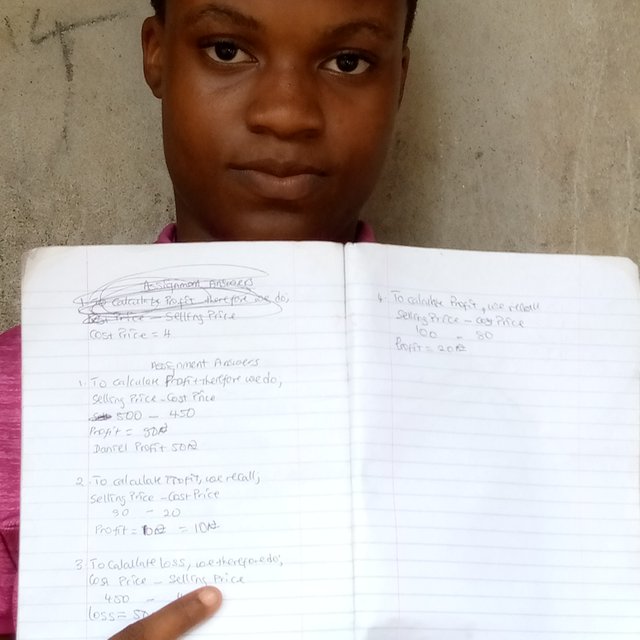 Assignment Answers
1. To calculate Profit therefore we do;
Cost Price - Selling Price
Cost Price = 4
Assignment Answers
1. To calculate Profit therefore we do;
Selling Price - Cost Price
500 - 450
Profit = 50₦
Daniel Profit 50₦
2. To calculate Profit, we recall,
Selling Price - Cost Price
30 - 20
Profit = 10₦ = 10₦
3. To Calculate loss, we therefore do;
Cost Price - Selling Price
450 -
Loss = 50
4. To calculate Profit, we recall
Selling Price - Cost Price
100 - 80
Profit = 20₦
14